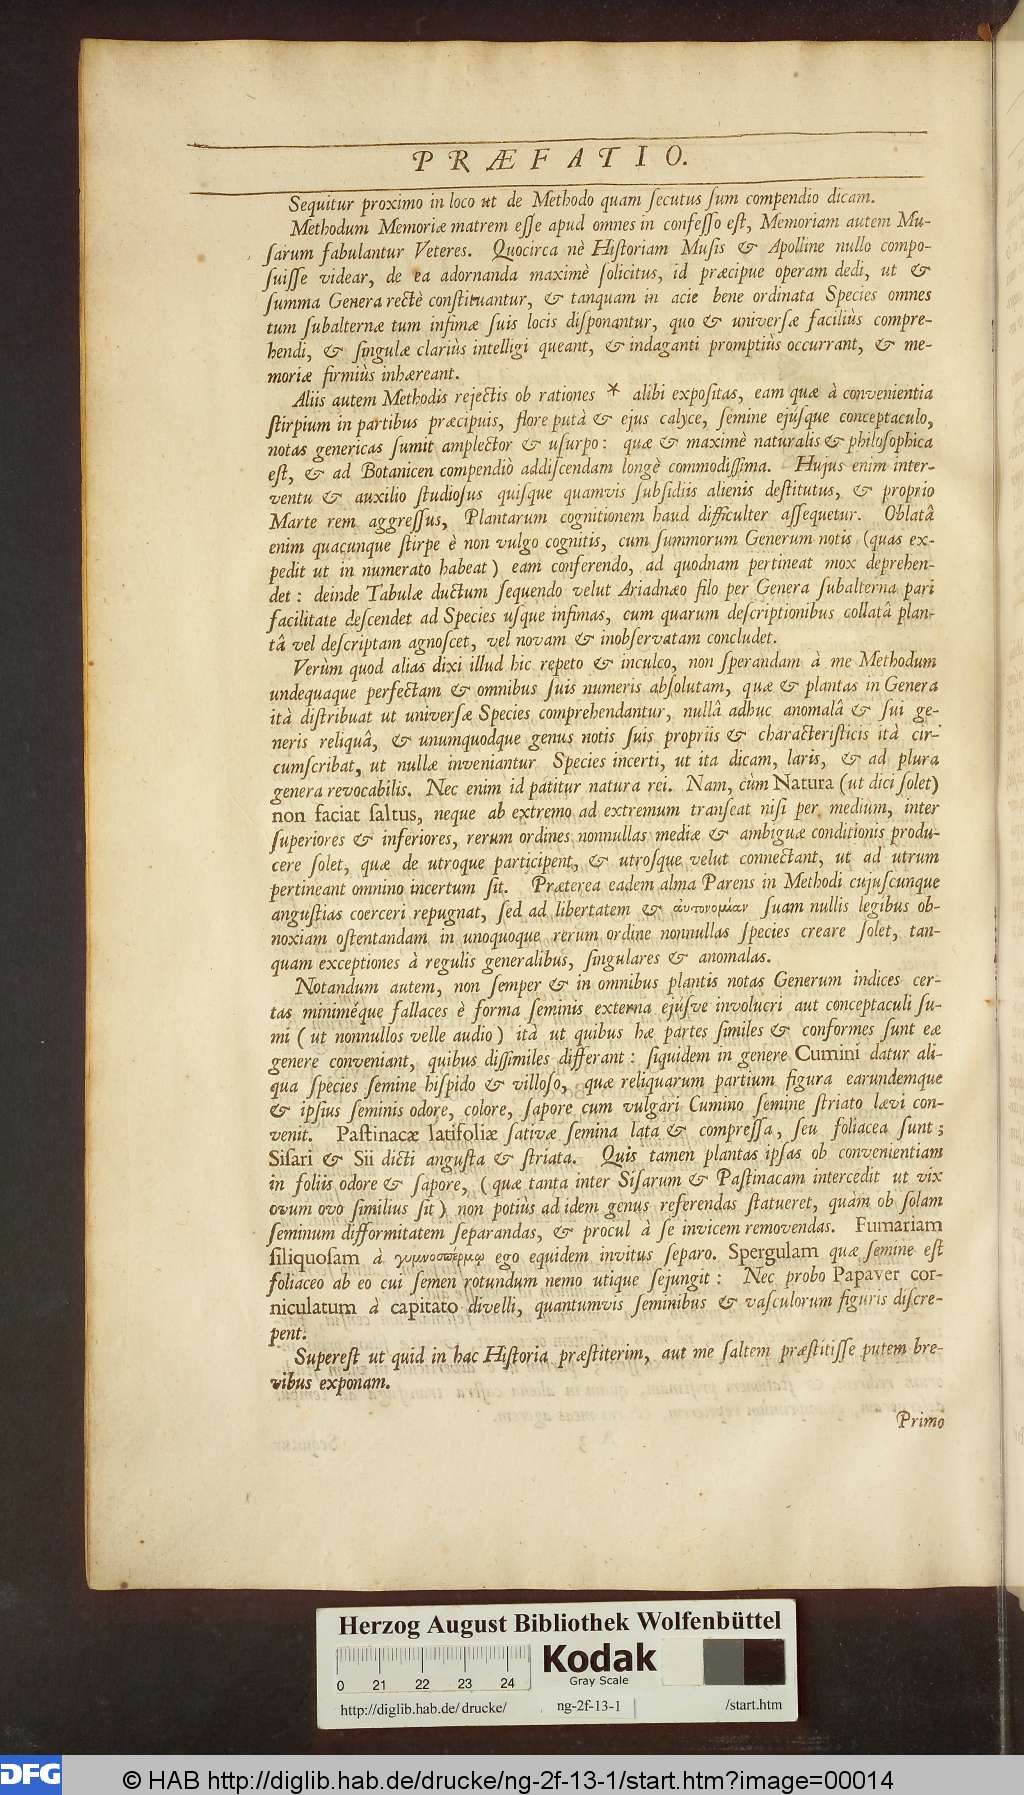 PRÆFATIO.
Sequitur proximo in loco ut de Methodo quam ſecutus ſum compendio dicam.
Methodum Memoriæ matrem eſſe apud omnes in confeſſo eſt, Memoriam autem Mu-
ſarum fabulantur Veteres. Quocirca nè Hiſtoriam Muſis & Apolline nullo compo-
ſuiſſe videar, de ea adornanda maximè ſolicitus, id præcipue operam dedi, ut &
ſumma Genera rectè conſtituantur, & tanquam in acie bene ordinata Species omnes
tum ſubalternæ tum infimæ ſuis locis diſponantur, quo & univerſæ faciliùs compre-
hendi, & ſingulæ clariùs intelligi queant, & indaganti promptiùs occurrant, & me-
moriæ firmiùs inhæreant.
Aliis autem Methodis rejectis ob rationes * alibi expoſitas, eam quæ à convenientia
ſtirpium in partibus præcipuis, flore putà & ejus calyce, ſemine ejúſque conceptaculo,
notas genericas ſumit amplector & uſurpo: quæ & maximè naturalis & philoſophica
eſt, & ad Botanicen compendiò addiſcendam longè commodiſſima. Hujus enim inter-
ventu & auxilio ſtudioſus quiſque quamvis ſubſidiis alienis deſtitutus, & proprio
Marte rem aggreſſus, Plantarum cognitionem haud difficulter aſſequetur. Oblatâ
enim quacunque ſtirpe è non vulgo cognitis, cum ſummorum Generum notis (quas ex-
pedit ut in numerato habeat) eam conferendo, ad quodnam pertineat mox deprehen-
det: deinde Tabulæ ductum ſequendo velut Ariadnæo filo per Genera ſubalterna pari
facilitate deſcendet ad Species uſque infimas, cum quarum deſcriptionibus collatâ plan-
tâ vel deſcriptam agnoſcet, vel novam & inobſervatam concludet.
Verùm quod alias dixi illud hic repeto & inculco, non ſperandam à me Methodum
undequaque perfectam & omnibus ſuis numeris abſolutam, quæ & plantas in Genera
ità diſtribuat ut univerſæ Species comprehendantur, nullâ adhuc anomalâ & ſui ge-
neris reliquâ, & unumquodque genus notis ſuis propriis & characteriſticis ità cir-
cumſcribat, ut nullæ inveniantur Species incerti, ut ita dicam, laris, & ad plura
genera revocabilis. Nec enim id patitur natura rei. Nam, cùm Natura (ut dici ſolet)
non faciat ſaltus, neque ab extremo ad extremum tranſeat niſi per medium, inter
ſuperiores & inferiores, rerum ordines nonnullas mediæ & ambiguæ conditionis produ-
cere ſolet, quæ de utroque participent, & utroſque velut connectant, ut ad utrum
pertineant omnino incertum ſit. Præterea eadem alma Parens in Methodi cujuſcunque
anguſtias coerceri repugnat, ſed ad libertatem & αὐτονομίαν ſuam nullis legibus ob-
noxiam oſtentandam in unoquoque rerum ordine nonnullas ſpecies creare ſolet, tan-
quam exceptiones à regulis generalibus, ſingulares & anomalas.
Notandum autem, non ſemper & in omnibus plantis notas Generum indices cer-
tas miniméque fallaces è forma ſeminis externa ejúſve involucri aut conceptaculi ſu-
mi (ut nonnullos velle audio) ità ut quibus hæ partes ſimiles & conformes ſunt eæ
genere conveniant, quibus diſſimiles differant: ſiquidem in genere Cumini datur ali-
qua ſpecies ſemine hiſpido & villoſo, quæ reliquarum partium figura earundemque
& ipſius ſeminis odore, colore, ſapore cum vulgari Cumino ſemine ſtriato lævi con-
venit. Paſtinacæ latifoliæ ſativæ ſemina lata & compreſſa, ſeu foliacea ſunt;
Siſari & Sii dicti anguſta & ſtriata. Quis tamen plantas ipſas ob convenientiam
in foliis odore & ſapore, (quæ tanta inter Siſarum & Paſtinacam intercedit ut vix
ovum ovo ſimilius ſit) non potiùs ad idem genus referendas ſtatueret, quàm ob ſolam
ſeminum difformitatem ſeparandas, & procul à ſe invicem removendas. Fumariam
ſiliquoſam à γυμνοσπέρμῳ ego equidem invitus ſeparo. Spergulam quæ ſemine eſt
foliaceo ab eo cui ſemen rotundum nemo utique ſejungit: Nec probo Papaver cor-
niculatum à capitato divelli, quantumvis ſeminibus & vaſculorum figuris diſcre-
pent.
Supereſt ut quid in hac Hiſtoria præſtiterim, aut me ſaltem præſtitiſſe putem bre-
vibus exponam.
Primo
Herzog August Bibliothek Wolfenbüttel
Kodak
Gray Scale
0 21 22 23 24
http://diglib.hab.de/drucke/ ng-2f-13-1 /start.htm
DFG
© HAB http://diglib.hab.de/drucke/ng-2f-13-1/start.htm?image=00014